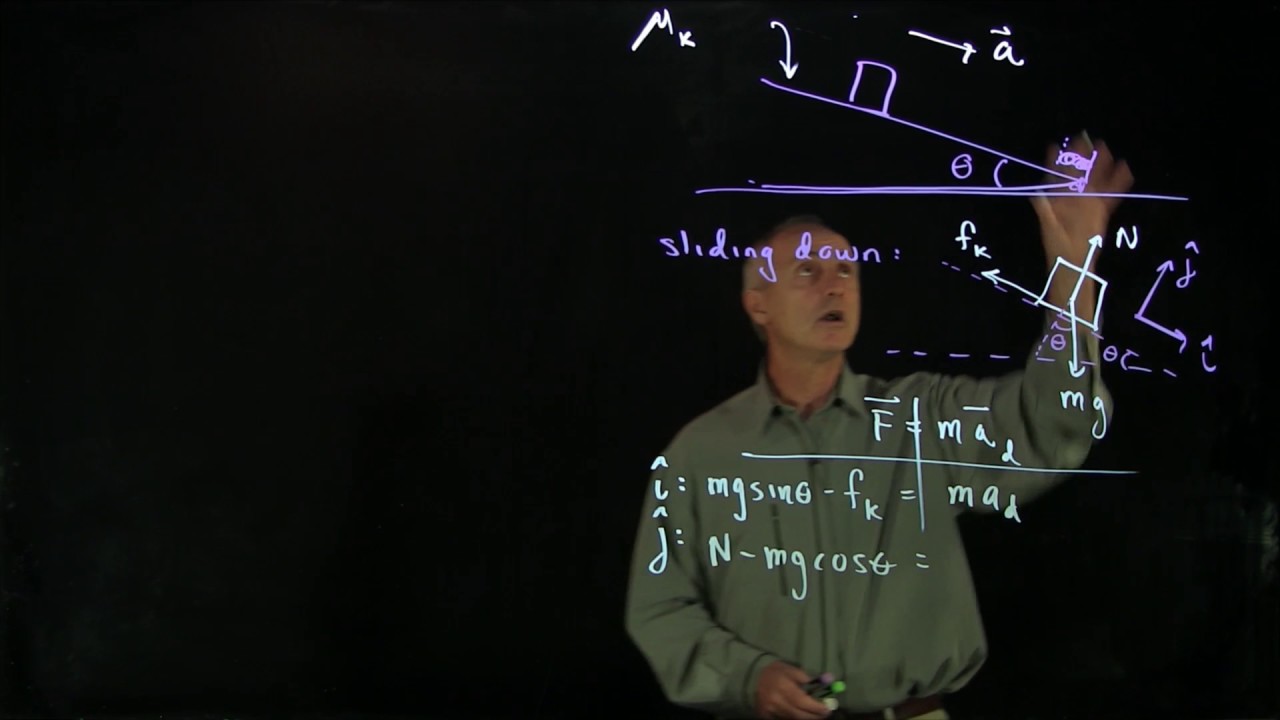 μₖ
a⃗
θ
sliding down:
fₖ
N
ĵ
î
θ
θ
mg
F⃗ = ma⃗_d
î: mg sinθ - fₖ = ma_d
ĵ: N - mg cosθ =